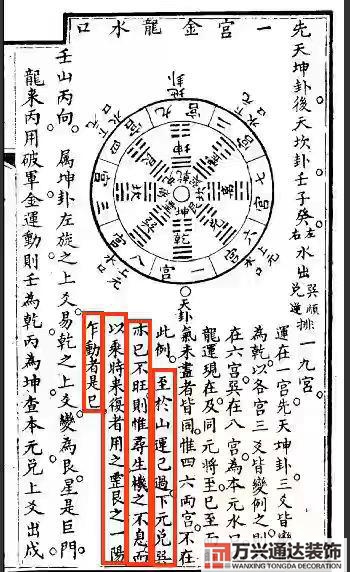 一宮金龍水口
先天坤卦後天坎卦壬子癸左右水出巽順兌逆排一九宮。
運在一宮先天坤卦三爻皆變
為乾以各宮三爻皆變例之則
在六宮巽在八宮為本元水口
龍運現在及同元將至已至
氣未盡者皆同惟四六兩宮不在
此例。至於山運已過下元兌巽
亦已不旺則惟尋生機之不息而
以乘時來復者用之震艮之一陽
乍動者是已
地卦
天卦
一宮
二宮
三宮
四宮
六宮
七宮
八宮
九宮
上元水口
下元水口
壬山丙向。屬坤卦左旋之上爻易乾之上爻變為艮星是巨門
龍來丙用破軍金運動則壬為乾丙為坤查本元兌上爻出戌
万兴通达装饰
WANXING TONGDA DECORATION